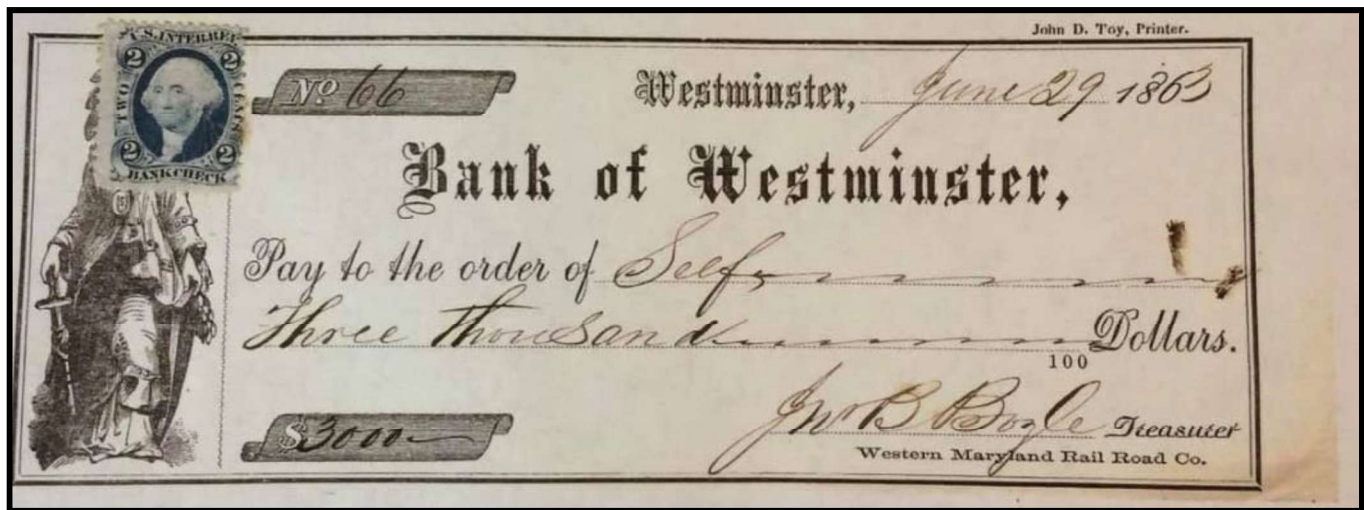 John D. Toy, Printer.
U.S. INTER. REV.
2 2
TWO CENTS
2 2
BANK CHECK
No 66
Westminster, June 29 1863
Bank of Westminster,
Pay to the order of Self
Three Thousand 100 Dollars.
$3000
Jno B Boyle Treasurer
Western Maryland Rail Road Co.